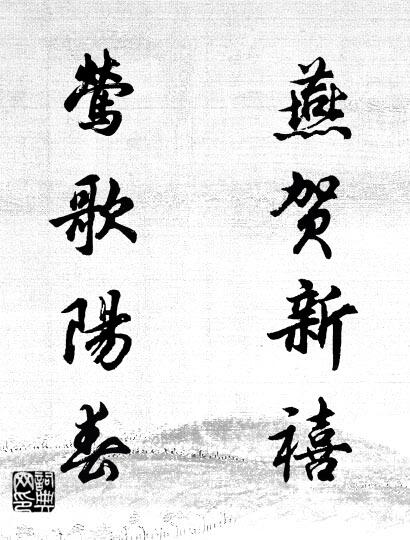 燕贺新禧
莺歌陽春
词典网